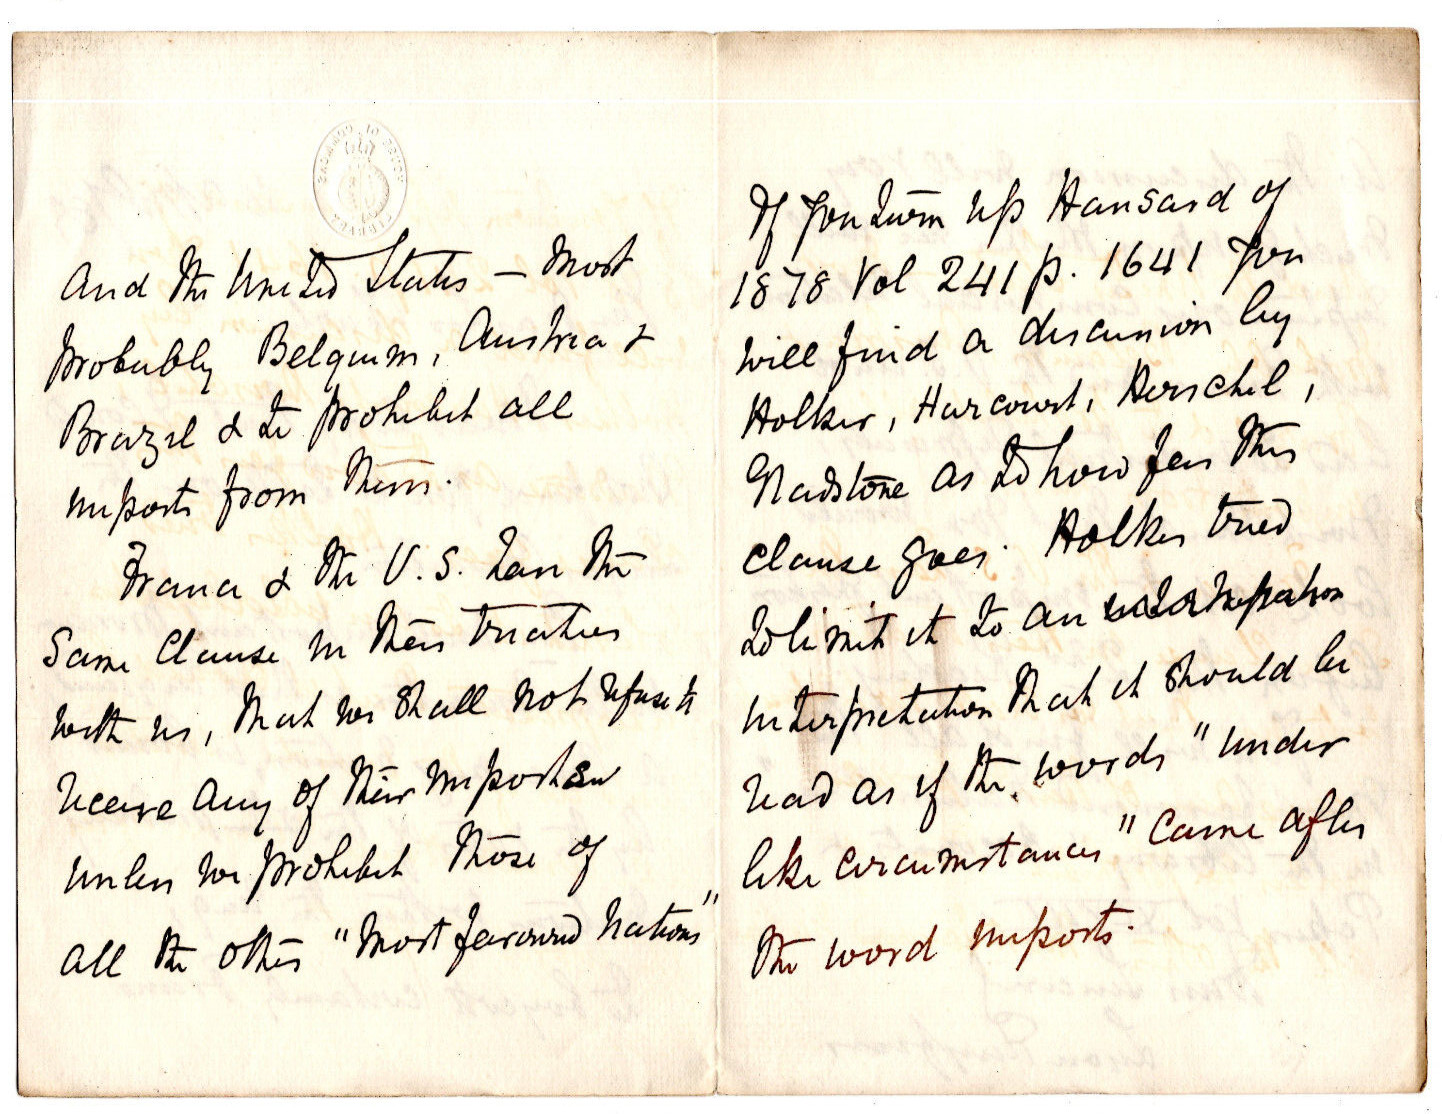 HOUSE OF COMMONS LIBRARY
and the United States – most
probably Belgium, Austria &
Brazil & to prohibit all
imports from them.
France & the U.S. have the
same clause in their treaties
with us, that we shall not refuse to
receive any of their imports
unless we prohibit those of
all the other "most favoured nations"
If you turn up Hansard of
1878 Vol 241 p. 1641 you
will find a discussion by
Holker, Harcourt, Herschel,
Gladstone as to how far this
clause goes. Holker tried
to limit it to an
interpretation that it should be
read as if the words "under
like circumstances" came after
the word imports.